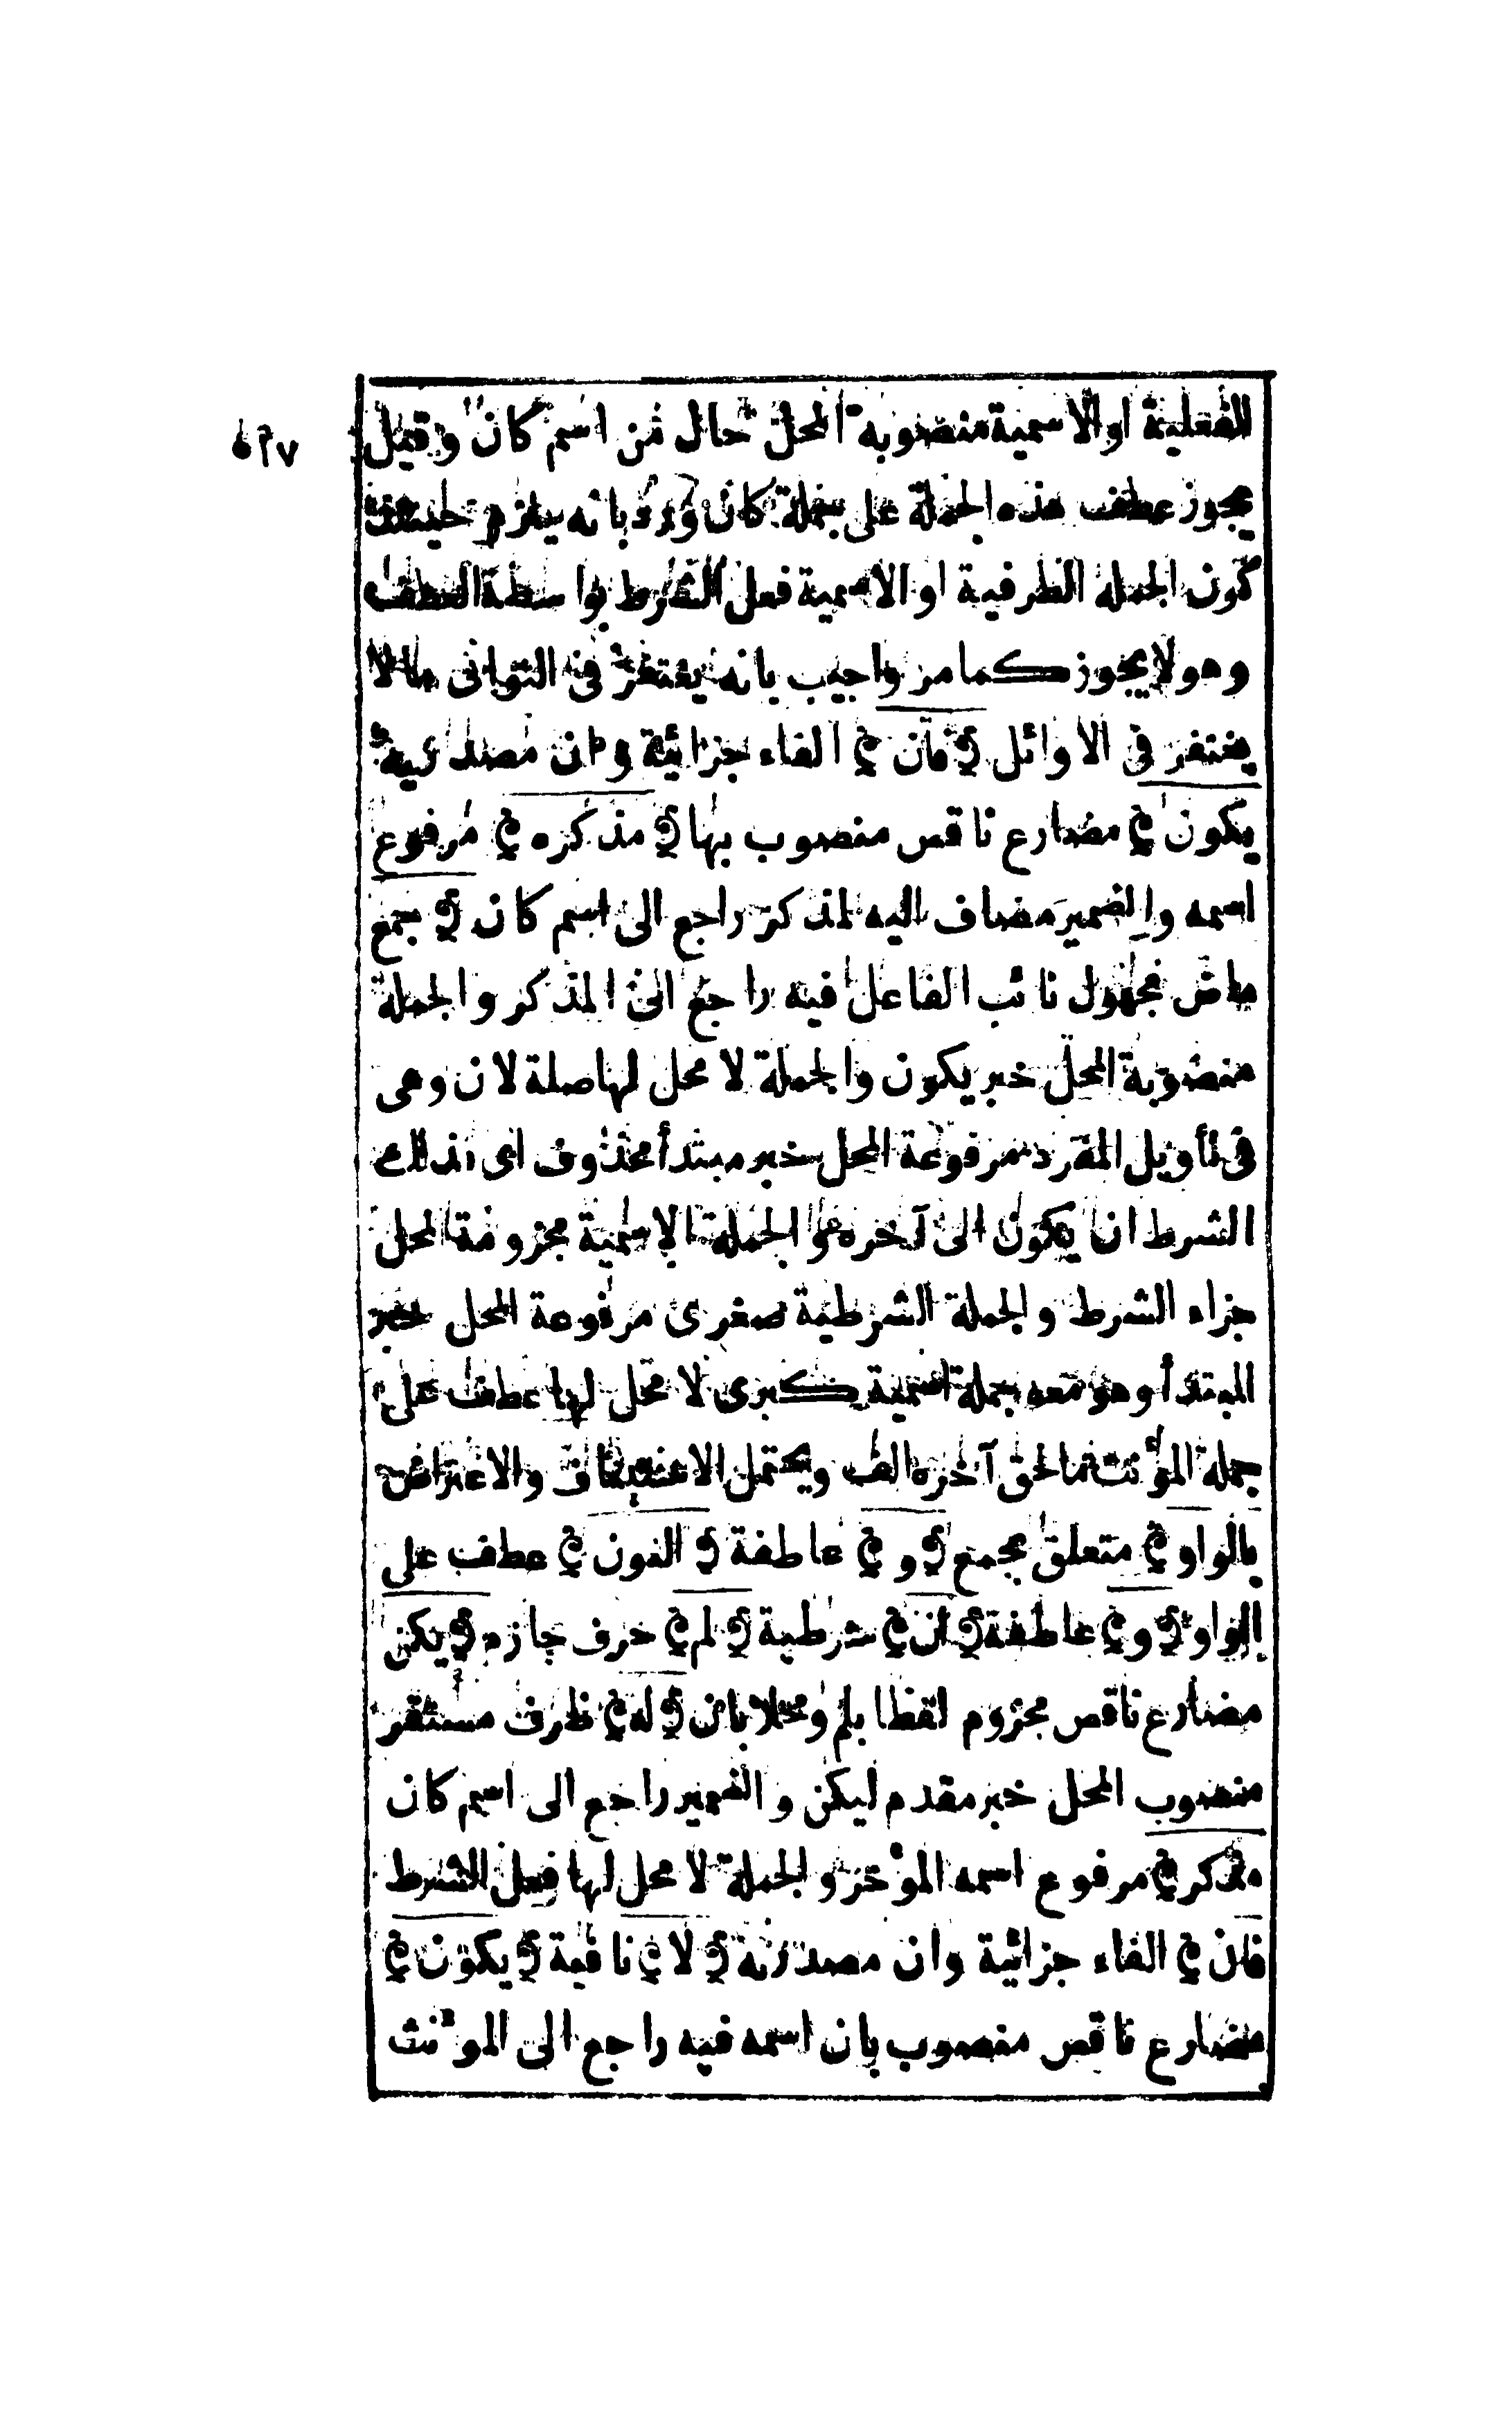 ٥٦٧
الفعلية او الاسمية منصوبة المحل حال من اسم كان وقيل
يجوز عطف هذه الجملة على جملة كان ورد بانه يلزم حينئذ
كون الجملة الظرفية او الاسمية فعل الشرط بواسطة العطف
وهو لا يجوز كما مر واجيب بانه يغتفر فى الثوانى ما لا
يغتفر فى الاوائل ﴿ فان ﴾ الفاء جزائية وان مصدرية
يكون ﴾ مضارع ناقص منصوب بها ﴿ مذكره ﴾ مرفوع
اسمه والضمير مضاف اليه لمذكر راجع الى اسم كان ﴿ جمع
ماض مجهول نائب الفاعل فيه راجع الى المذكر والجملة
منصوبة المحل خبر يكون والجملة لا محل لها صلة لان وهى
فى تأويل المفرد مرفوعة المحل خبر مبتدأ محذوف اى ذلك
الشرط ان يكون الى آخره والجملة الاسمية مجزومة المحل
جزاء الشرط والجملة الشرطية صغرى مرفوعة المحل خبر
المبتدأ وهو معه جملة اسمية كبرى لا محل لها عطف على
جملة المؤنث ما لحق آخره الف ويحتمل الاستيناف والاعتراض
بالواو ﴾ متعلق بجمع ﴿ و ﴾ عاطفة ﴿ النون ﴾ عطف على
الواو ﴿ و ﴾ عاطفة ﴿ ان ﴾ شرطية ﴿ لم ﴾ حرف جازم ﴿ يكن
مضارع ناقص مجزوم لفظا بلم ومحلا بان ﴿ له ﴾ ظرف مستقر
منصوب المحل خبر مقدم ليكن والضمير راجع الى اسم كان
مذكر ﴾ مرفوع اسمه المؤخر والجملة لا محل لها فعل الشرط
فان ﴾ الفاء جزائية وان مصدرية ﴿ لا ﴾ نافية ﴿ يكون ﴾
مضارع ناقص منصوب بان اسمه فيه راجع الى المؤنث